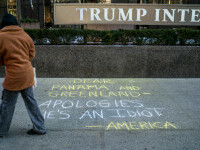 TRUMP INTE
DEAR
PANAMA AND
GREENLAND-
APOLOGIES
HE'S AN IDIOT
- AMERICA